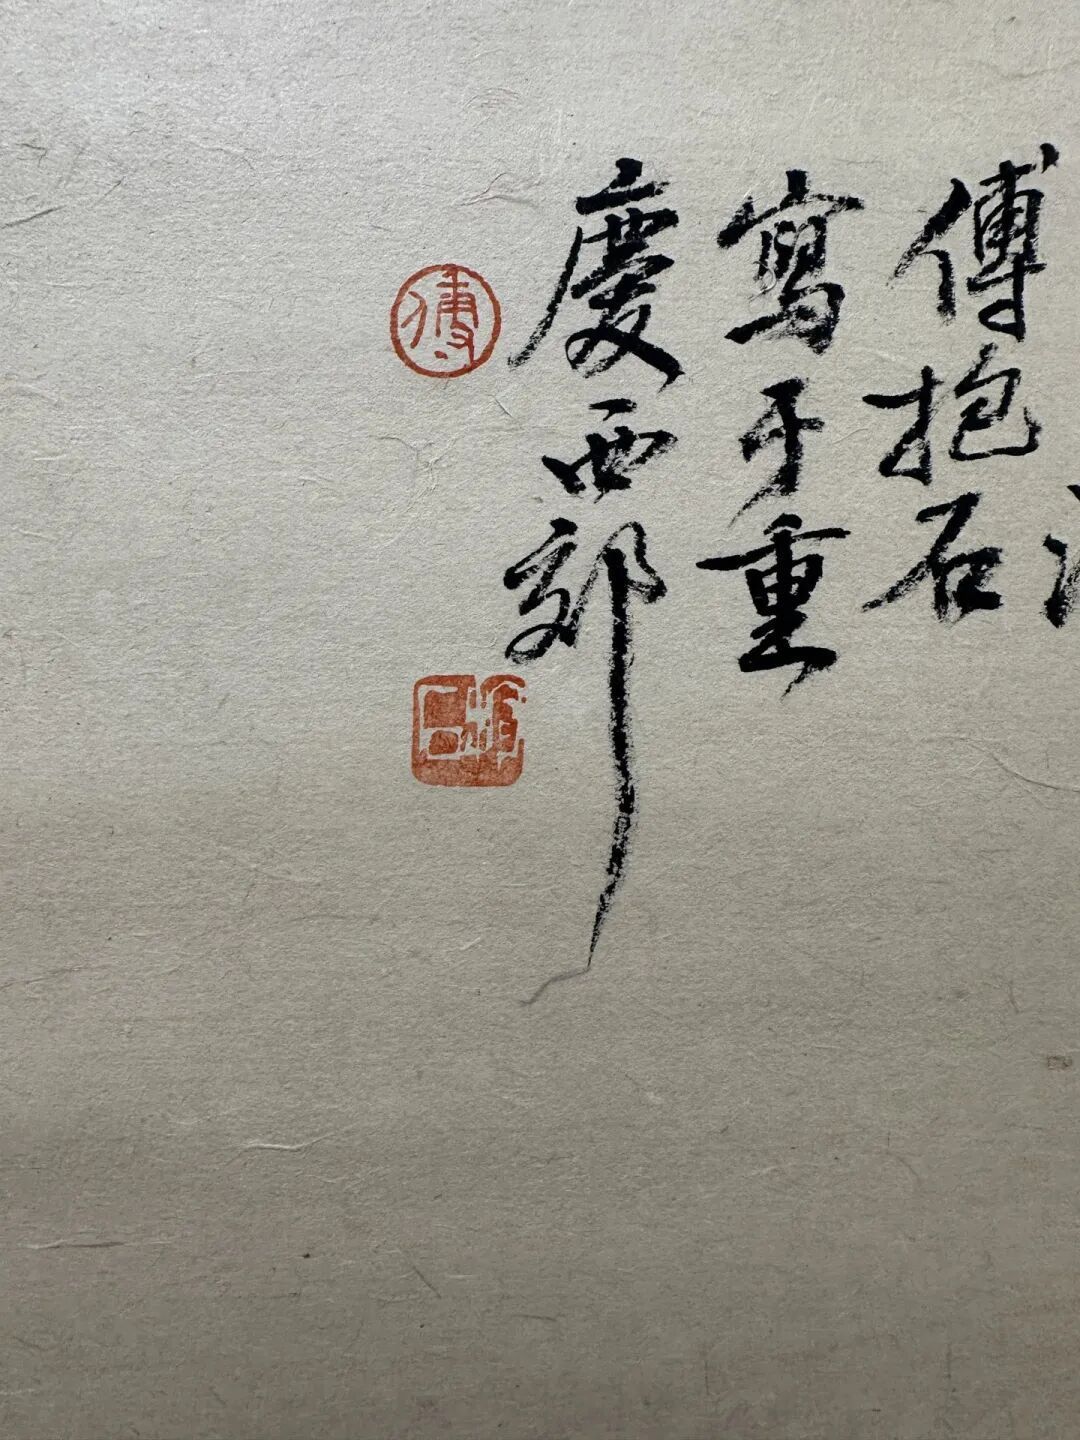 傅抱石
寫于重
慶西郊
傅